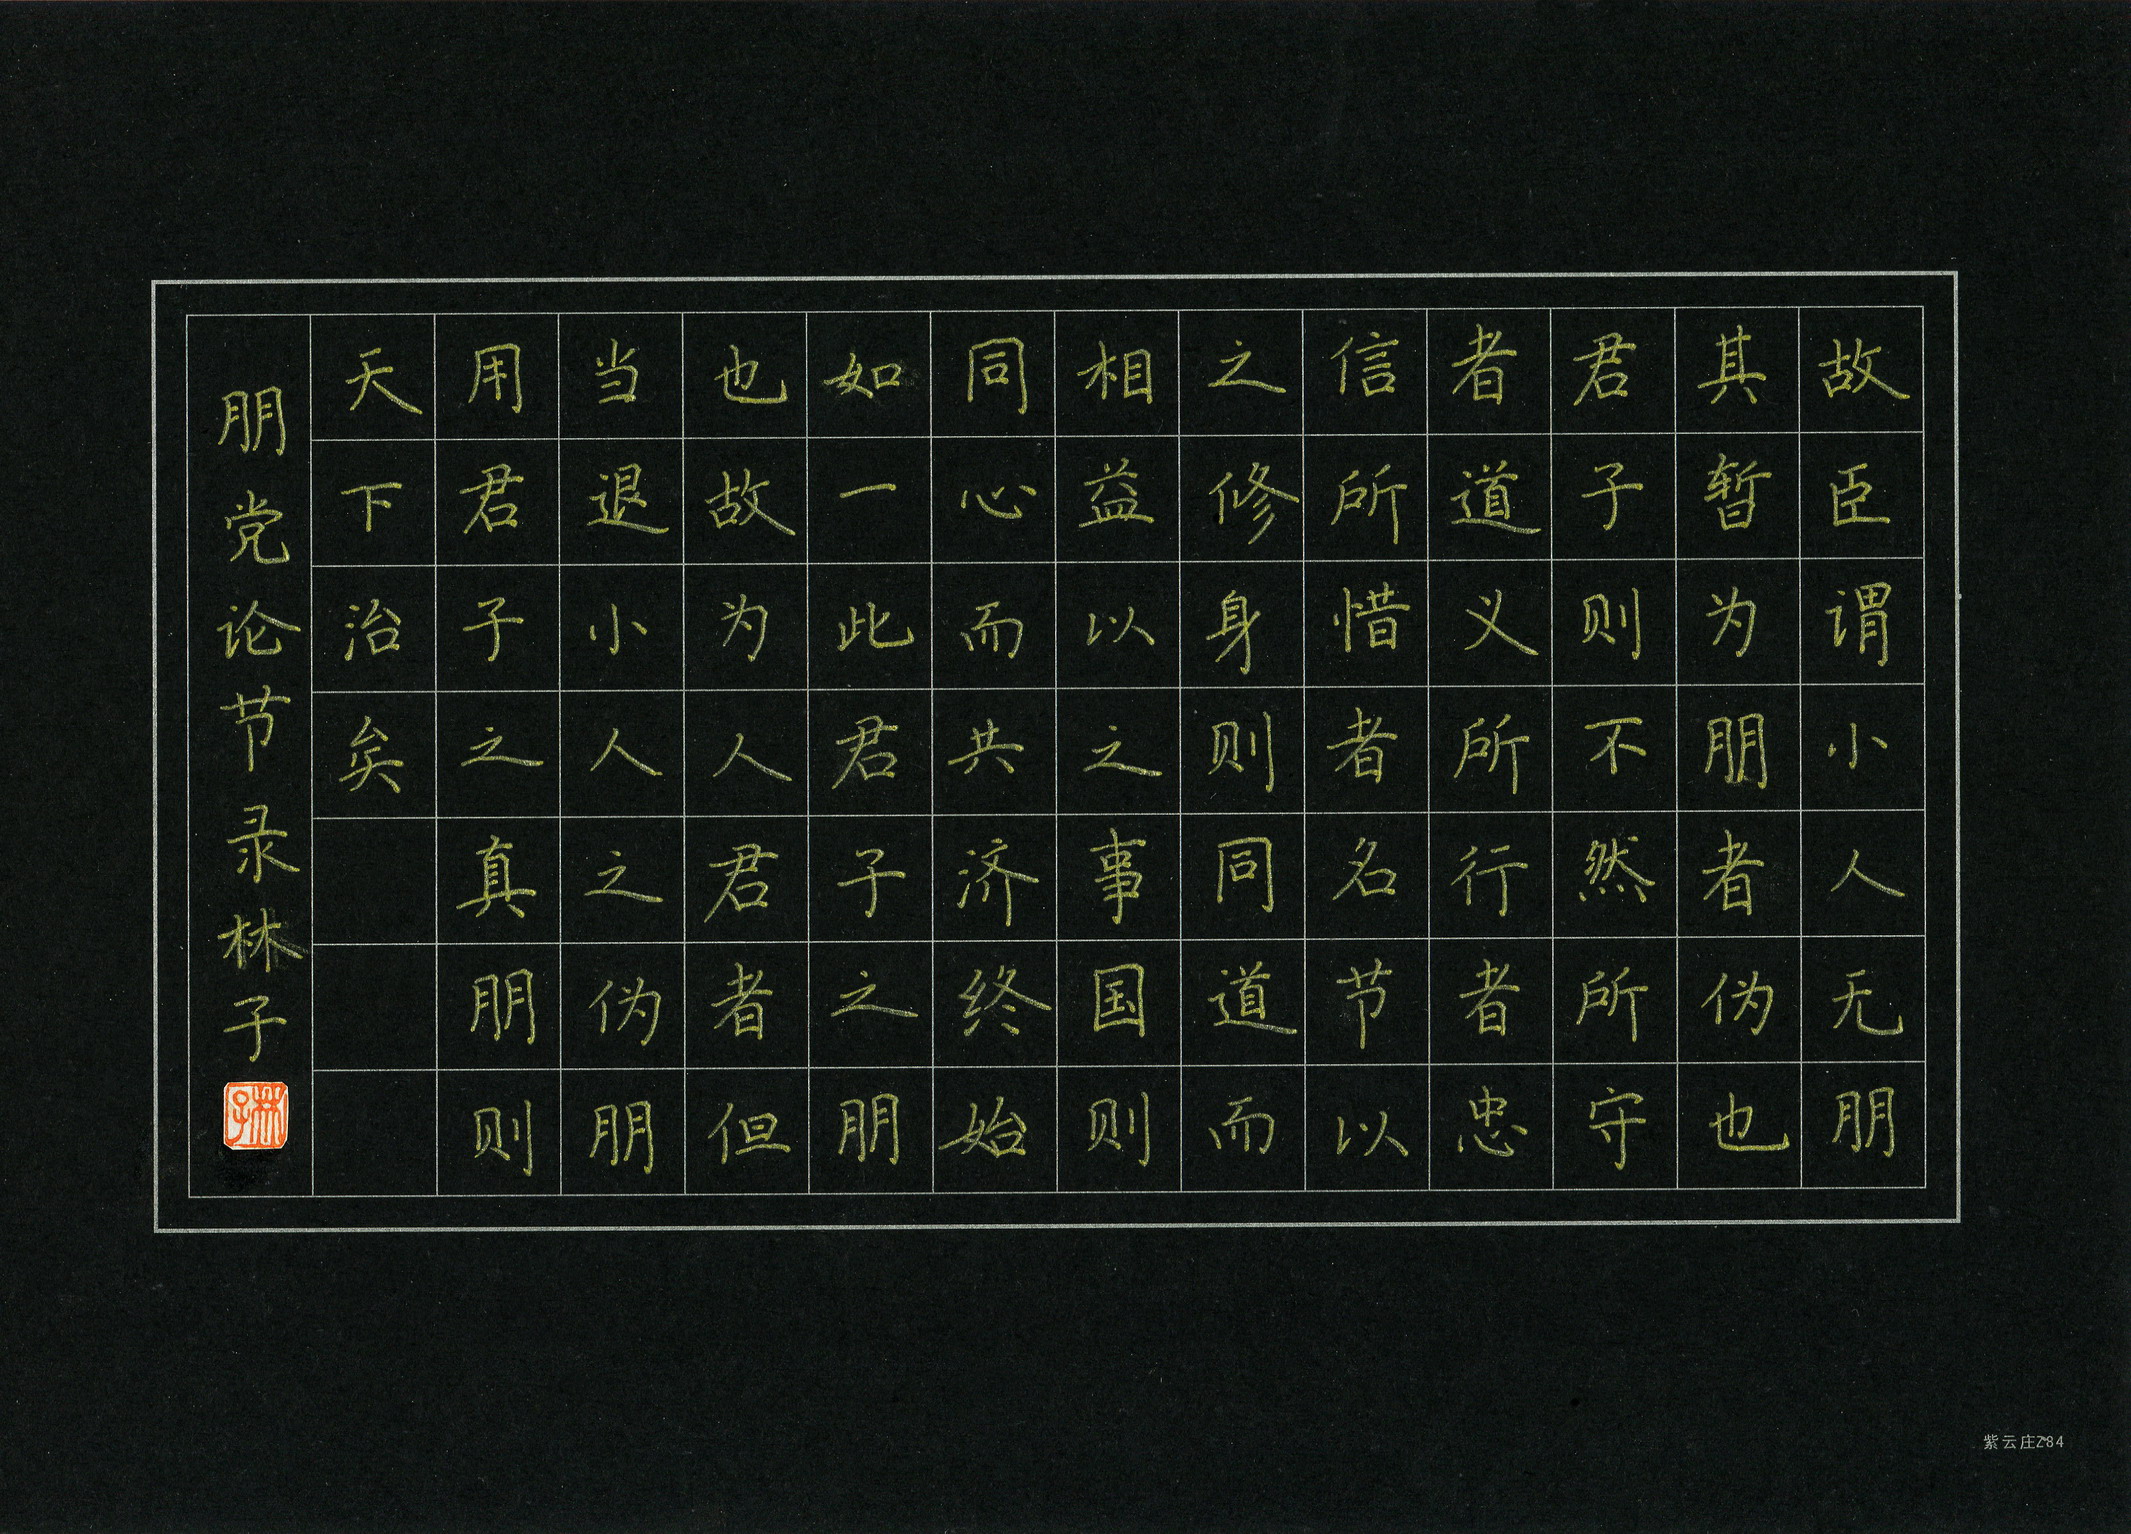 故臣谓小人无朋
其暂为朋者伪也
君子则不然所守
者道义所行者忠
信所惜者名节以
之修身则同道而
相益以之事国则
同心而共济终始
如一此君子之朋
也故为人君者但
当退小人之伪朋
用君子之真朋则
天下治矣
朋党论节录林子
林子
紫云庄Z84